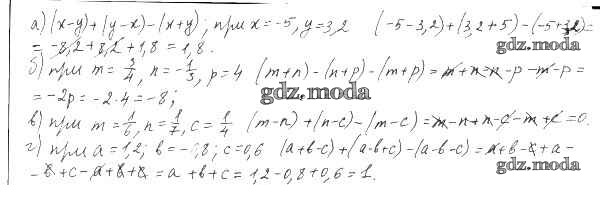 а) (x-y)+(y-x)-(x+y); при x=-5, y=3,2 (-5-3,2)+(3,2+5)-(-5+3,2)=
= -8,2+8,2+1,8 = 1,8.
gdz.moda
б) при m=3/4, n=-1/3, p=4 (m+n)-(n+p)-(m+p)=m+n-n-p-m-p=
= -2p=-2·4=-8;
gdz.moda
в) при m=1/6, n=1/7, c=1/4 (m-n)+(n-c)-(m-c)=m-n+n-c-m+c=0.
г) при a=1,2; b=-0,8; c=0,6 (a+b-c)+(a-b+c)-(a-b-c)=a+b-c+a-
gdz.moda
-b+c-a+b+c=a+b+c=1,2-0,8+0,6=1.